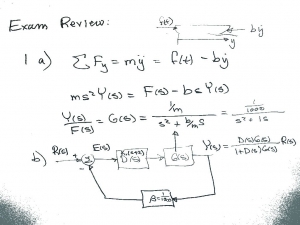 Exam Review:
f(t) bẏ
y
1 a) ∑ Fy = mÿ = f(t) - bẏ
ms² Y(s) = F(s) - bs Y(s)
Y(s)/F(s) = G(s) = (1/m)/(s² + b/m s) = (1/1000)/(s² + 1s)
b) R(s) + E(s) D(s) G(s) Y(s) = D(s)G(s)/(1+D(s)G(s)) R(s)
-